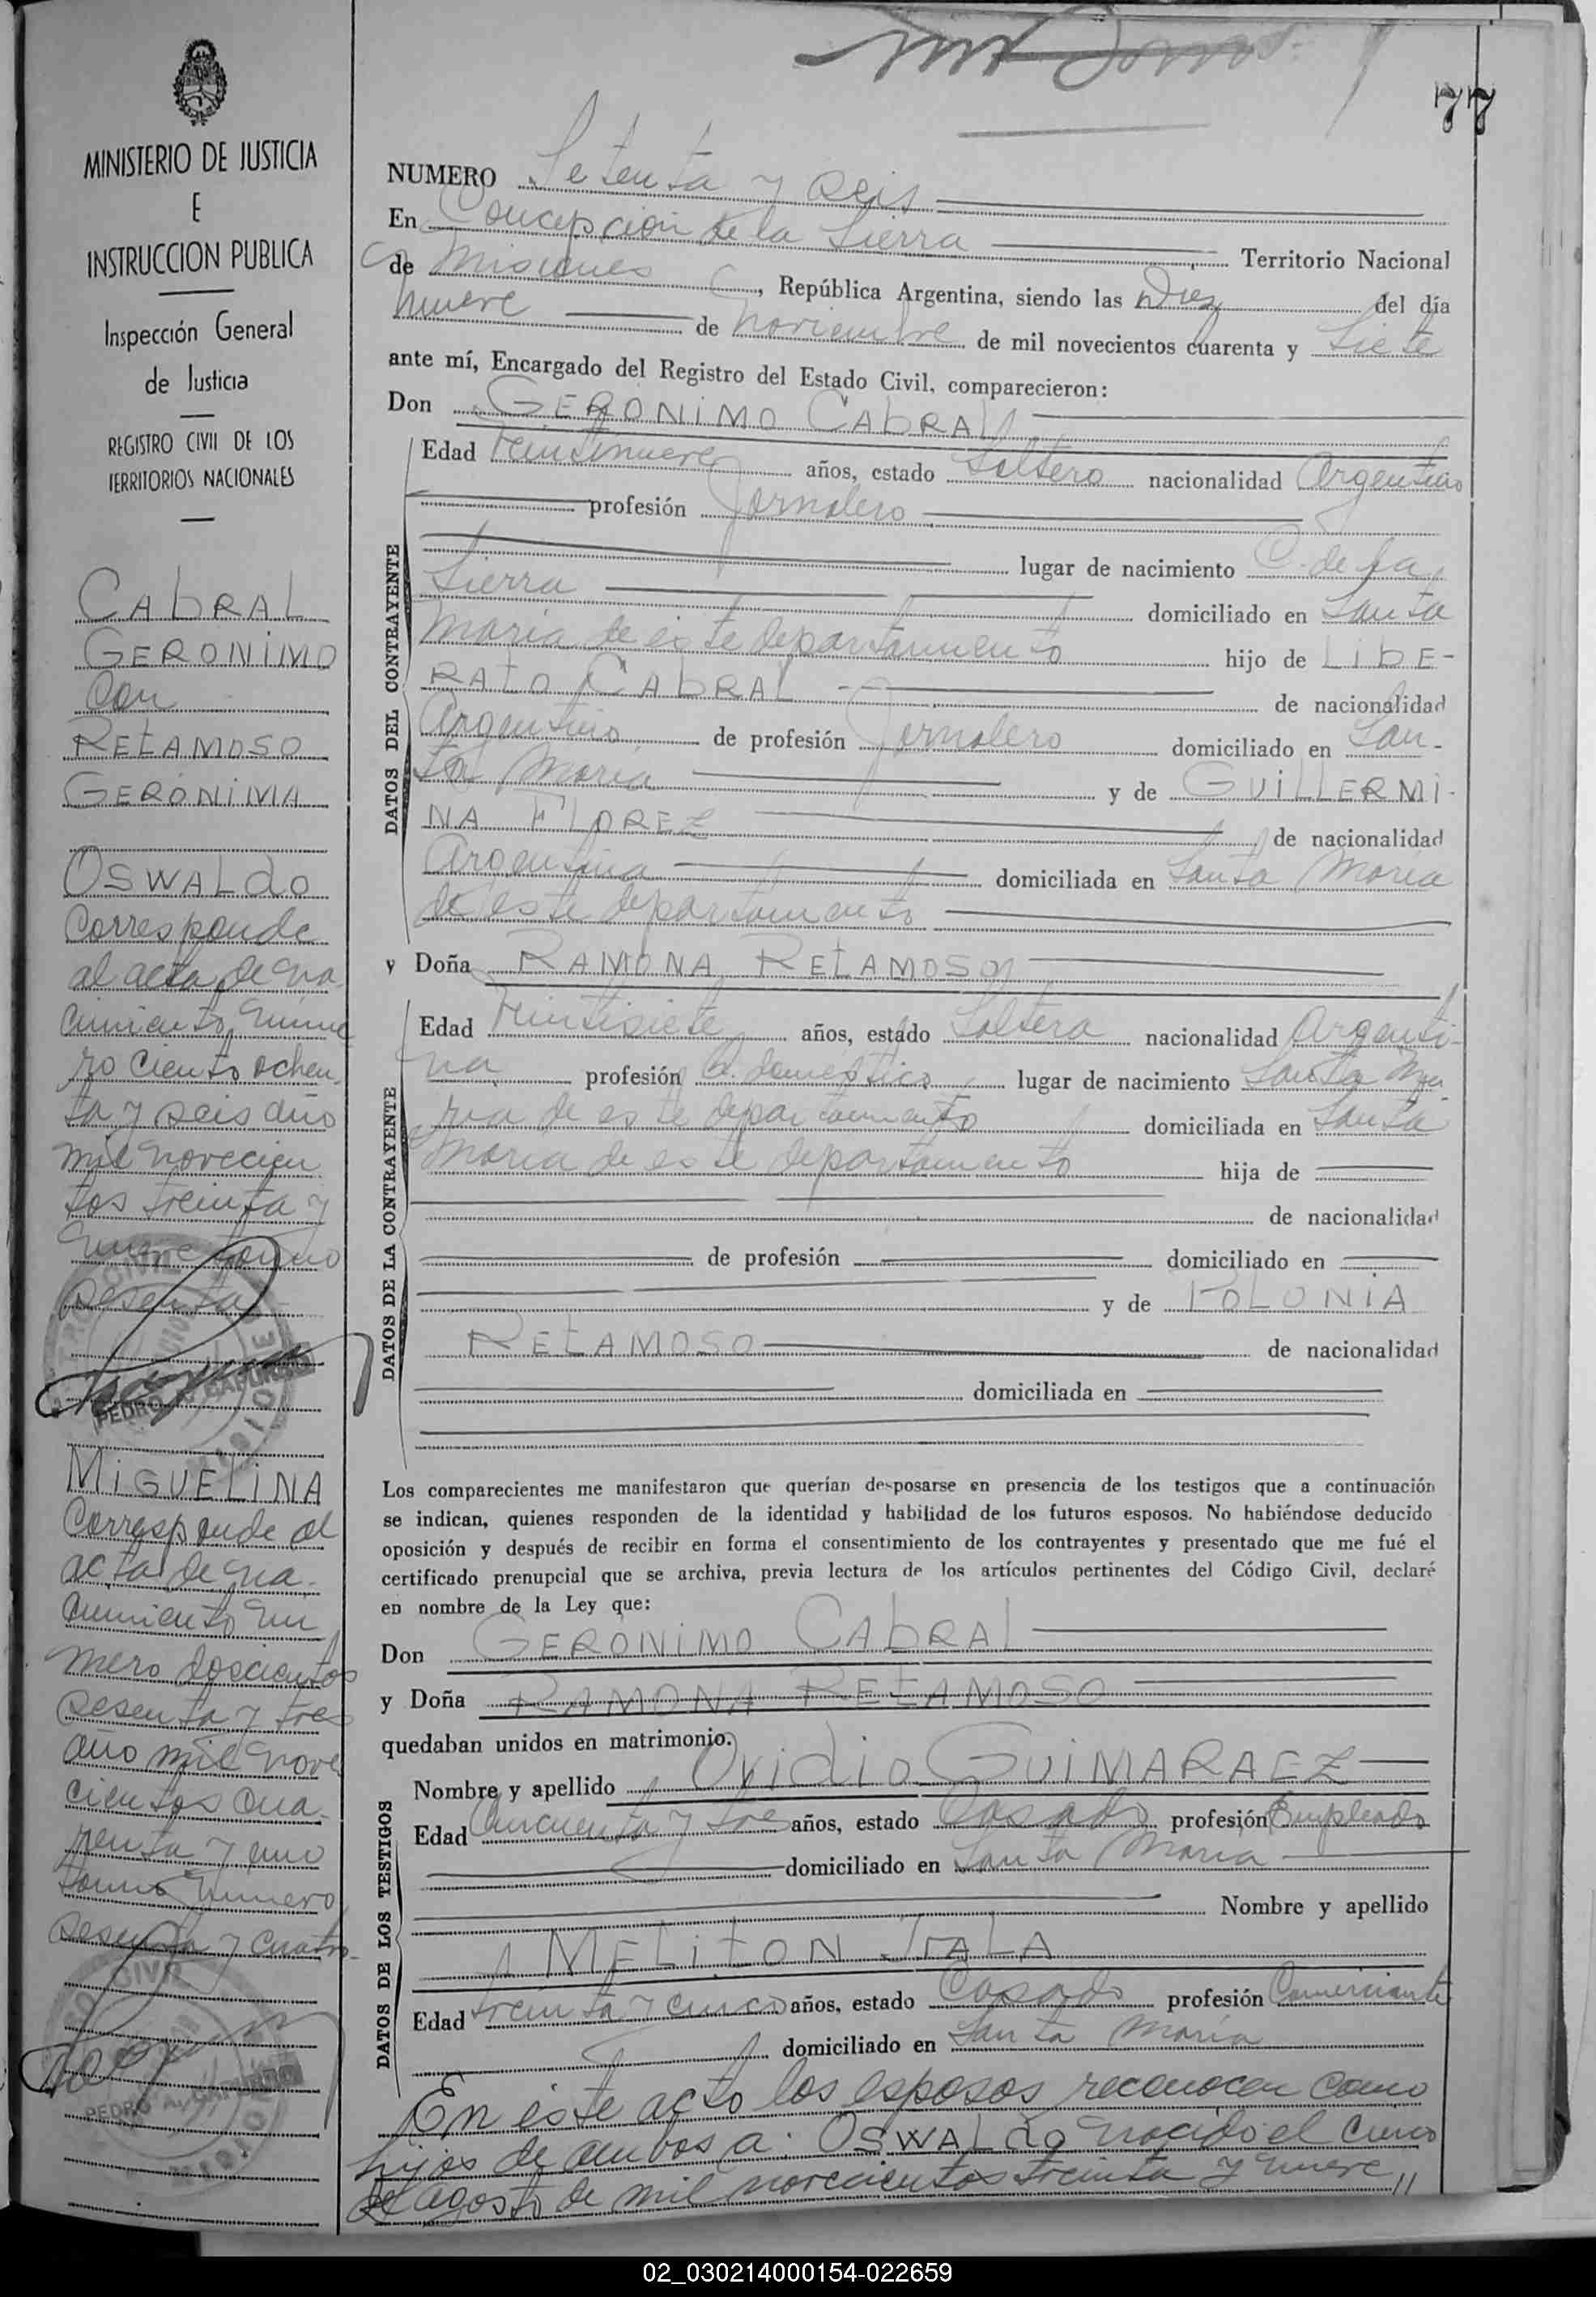 77
MINISTERIO DE JUSTICIA
E
INSTRUCCION PUBLICA
Inspección General
de Justicia
REGISTRO CIVIL DE LOS
TERRITORIOS NACIONALES
CAbRAL
GERONIMO
con
REtAMOSO
GERONIMA
OSWALdO
Corresponde
al acta de na-
cimiento núme
ro ciento ochen-
ta y seis año
mil novecien
tos treinta y
nueve tomo
sesenta
PEDRO A. CAPURRO
MiGUELiNA
Corresponde al
acta de na-
cimiento nú
mero doscientos
sesenta y tres
año mil nove
cientos cua-
renta y uno
tomo número
sesenta y cuatro
PEDRO A. CAPURRO
NUMERO Setenta y seis
En Concepción de la Sierra Territorio Nacional
de Misiones, República Argentina, siendo las Diez del día
nueve de noviembre de mil novecientos cuarenta y Siete
ante mí, Encargado del Registro del Estado Civil, comparecieron:
Don GERONIMO CAbRAL
DATOS DEL CONTRAYENTE
Edad veintinueve años, estado Soltero nacionalidad Argentino
profesión Jornalero
lugar de nacimiento C. de la
Sierra domiciliado en Santa
Maria de este departamento hijo de LibE-
RATO CAbRAL de nacionalidad
Argentino de profesión Jornalero domiciliado en San-
ta Maria y de GUiLLERMi-
NA FLOREZ de nacionalidad
Argentina domiciliada en Santa Maria
de este departamento
y Doña RAMONA REtAMOSO
DATOS DE LA CONTRAYENTE
Edad veintisiete años, estado Soltera nacionalidad Argenti-
na profesión Q. domestico lugar de nacimiento Santa Ma-
ria de este departamento domiciliada en Santa
Maria de este departamento hija de
de nacionalidad
de profesión domiciliado en
y de POLONiA
REtAMOSO de nacionalidad
domiciliada en
Los comparecientes me manifestaron que querían desposarse en presencia de los testigos que a continuación
se indican, quienes responden de la identidad y habilidad de los futuros esposos. No habiéndose deducido
oposición y después de recibir en forma el consentimiento de los contrayentes y presentado que me fué el
certificado prenupcial que se archiva, previa lectura de los artículos pertinentes del Código Civil, declaré
en nombre de la Ley que:
Don GERONiMO CAbRAL
y Doña RAMONA REtAMOSO
quedaban unidos en matrimonio.
DATOS DE LOS TESTIGOS
Nombre y apellido OvidiO GUiMARAEZ
Edad Cincuenta y tres años, estado Casado profesión Empleado
domiciliado en Santa Maria
Nombre y apellido
MELitON
Edad treinta y cinco años, estado Casado profesión Comerciante
domiciliado en Santa Maria
En este acto los esposos reconocen como
hijos de ambos a: OSWALdO nacido el cinco
de agosto de mil novecientos treinta y nueve //
02_030214000154-022659